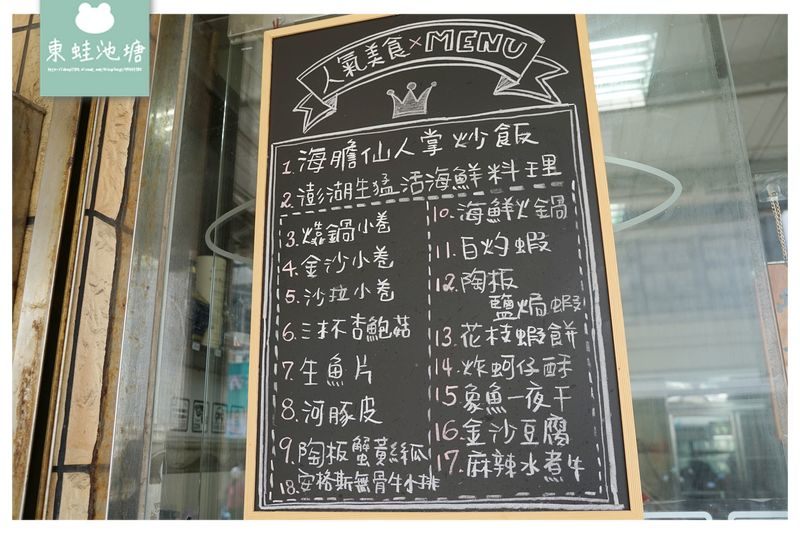 東蛙池塘
人氣美食×MENU
1.海膽仙人掌炒飯
2.澎湖生猛活海鮮料理
3.燒鍋小卷
4.金沙小卷
5.沙拉小卷
6.三杯杏鮑菇
7.生魚片
8.河豚皮
9.陶板蟹黃絲瓜
18.安格斯無骨牛小排
10.海鮮火鍋
11.白灼蝦
12.陶板
鹽焗蝦
13.花枝蝦餅
14.炸蚵仔酥
15.象魚一夜干
16.金沙豆腐
17.麻辣水煮牛